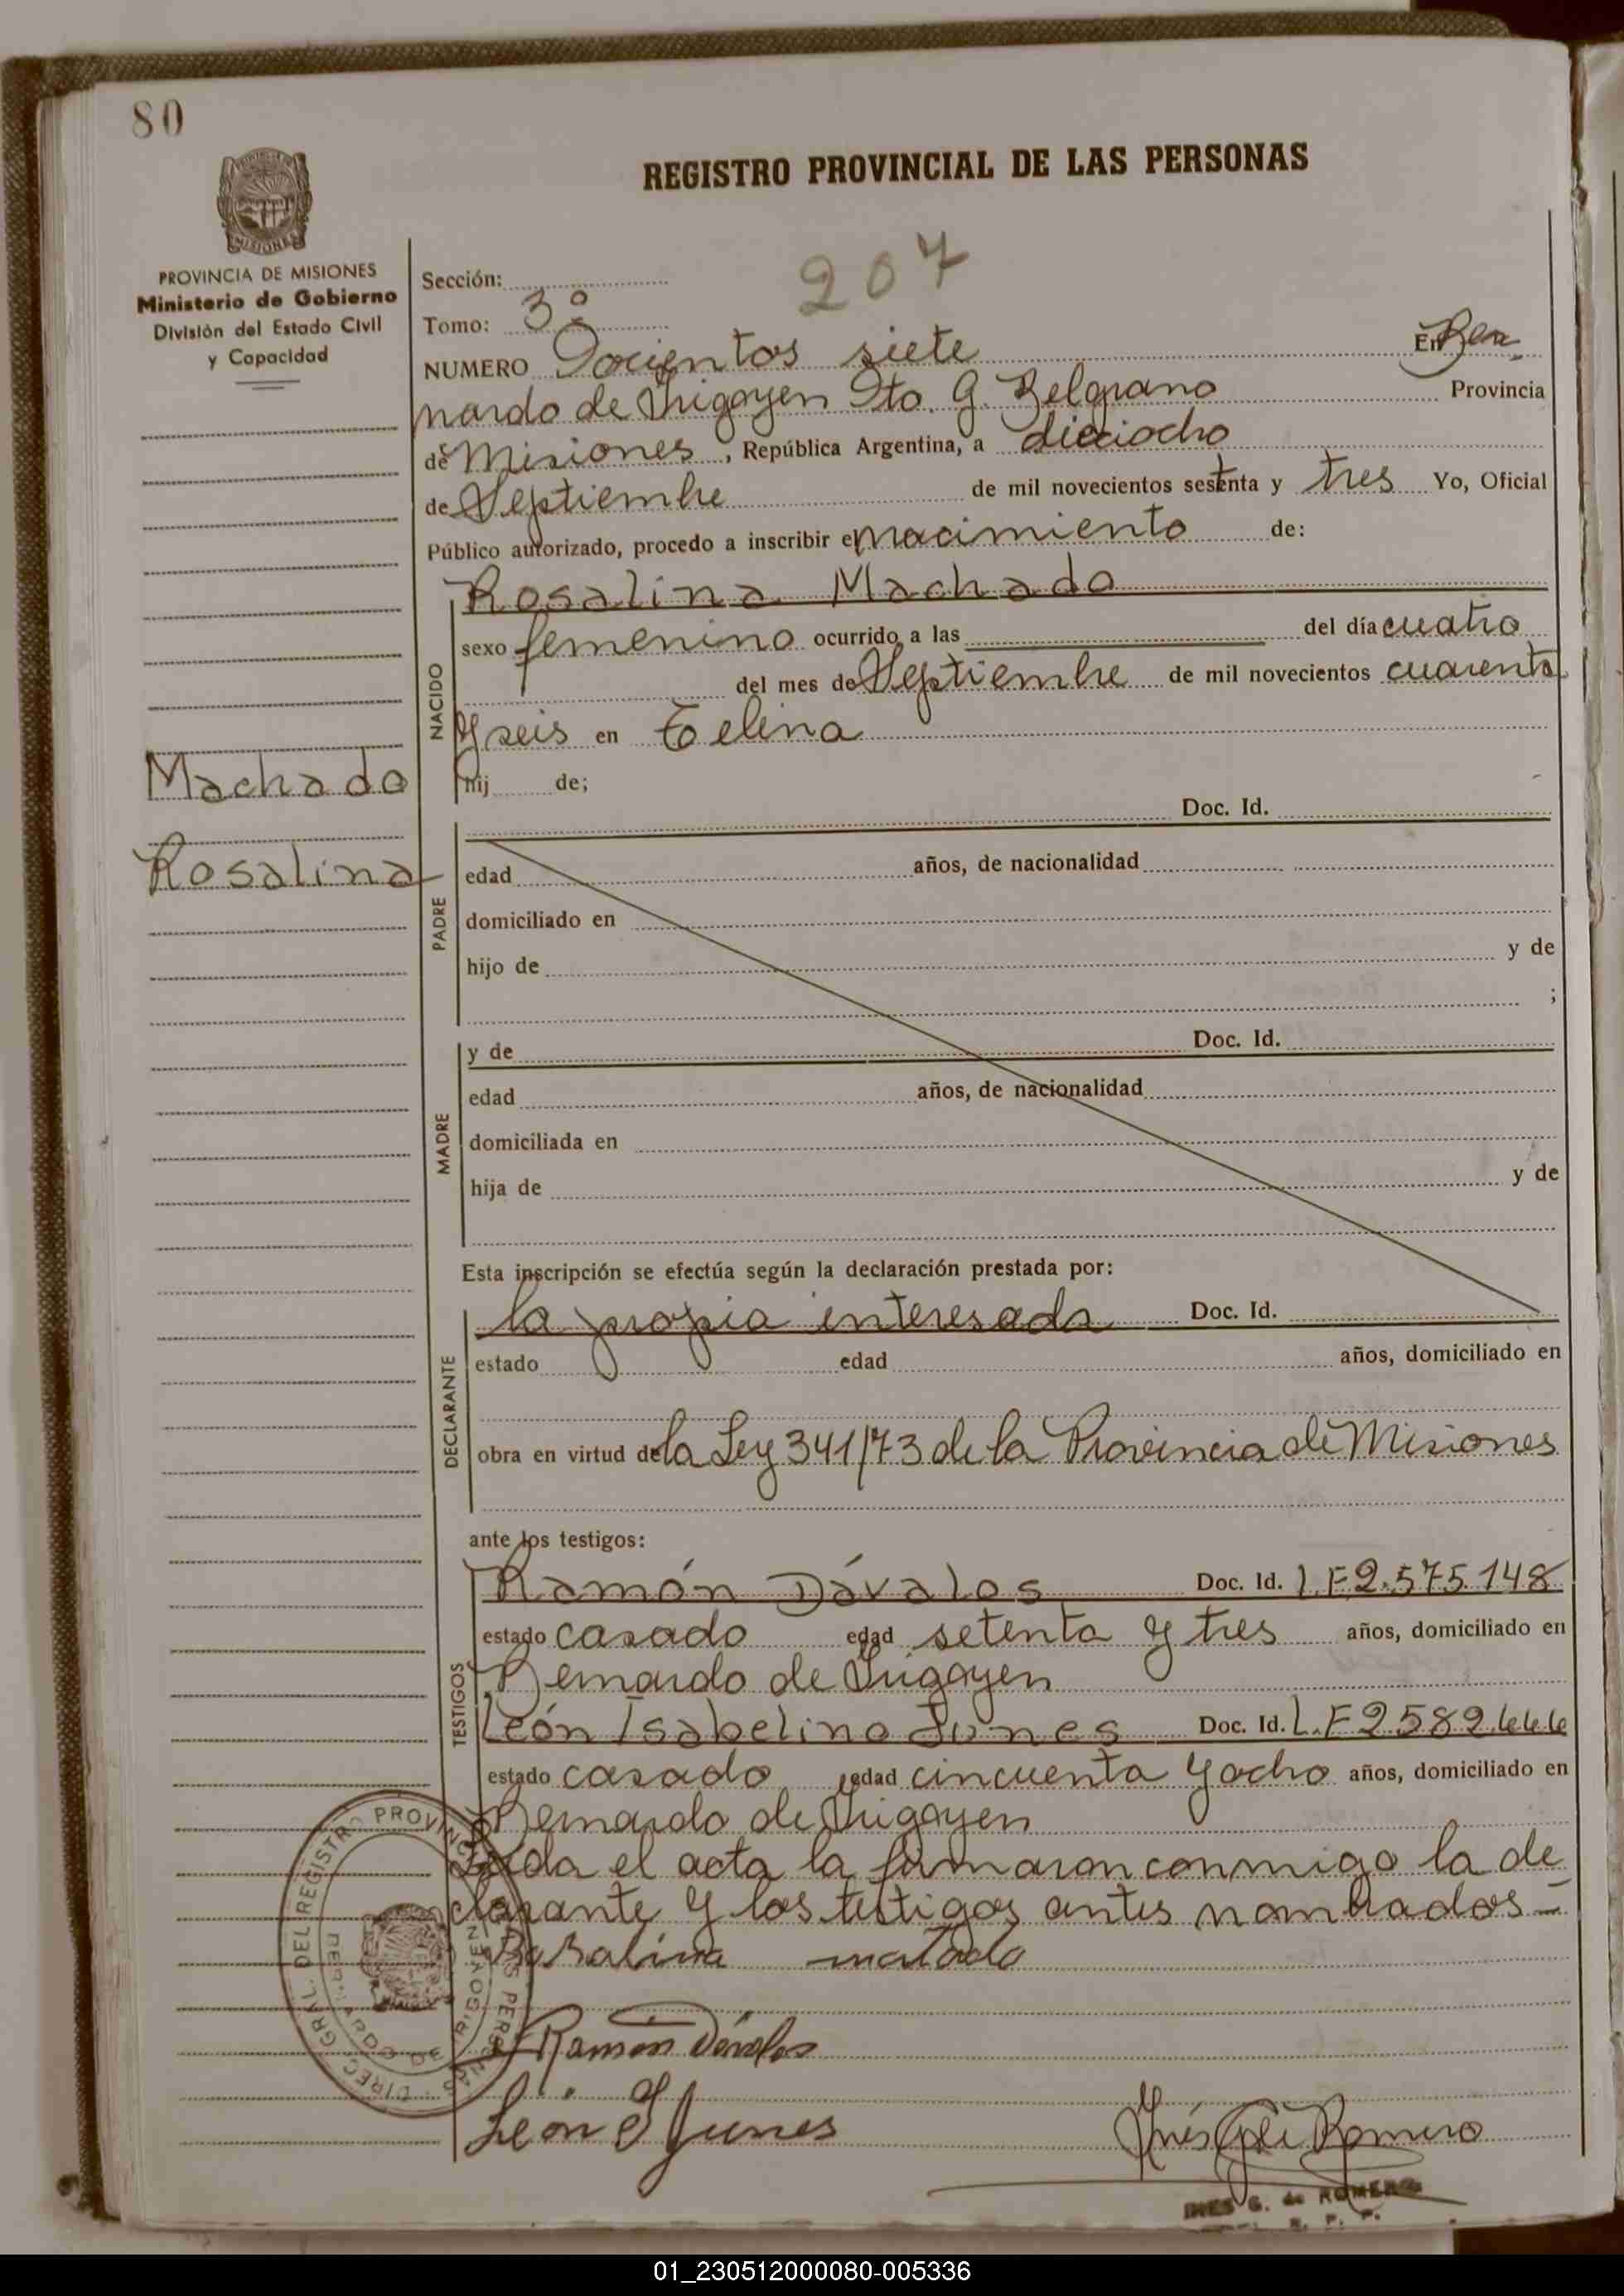 80
REGISTRO PROVINCIAL DE LAS PERSONAS
MISIONES
PROVINCIA DE MISIONES
Ministerio de Gobierno
División del Estado Civil
y Capacidad
207
Sección:
Tomo: 3º
NUMERO Docientos siete En Ber
nardo de Irigoyen Dto. G. Belgrano Provincia
de Misiones, República Argentina, a dieciocho
de Septiembre de mil novecientos setenta y tres Yo, Oficial
Público autorizado, procedo a inscribir el nacimiento de:
Rosalina Machado
NACIDO
sexo femenino ocurrido a las del día cuatro
del mes de Septiembre de mil novecientos cuarenta
y seis en
hij de;
Machado
Rosalina
PADRE
Doc. Id.
edad años, de nacionalidad
domiciliado en
hijo de y de
;
MADRE
y de Doc. Id.
edad años, de nacionalidad
domiciliada en
hija de y de
Esta inscripción se efectúa según la declaración prestada por:
DECLARANTE
la propia interesada Doc. Id.
estado edad años, domiciliado en
obra en virtud de la Ley 341/73 de la Provincia de Misiones
ante los testigos:
TESTIGOS
Ramón Dávalos Doc. Id. L.E 2.575.148
estado casado edad setenta y tres años, domiciliado en
Bernardo de Irigoyen
León Isabelino Junes Doc. Id. L.E 2582.666
estado casado edad cincuenta y ocho años, domiciliado en
Bernardo de Irigoyen
Leída el acta la firmaron conmigo la de
clarante y los testigos antes nombrados -
Rosalina matado
Ramón Dávalos
León I Junes
Inés G de Romero
INES G. de ROMERO
R. P. P.
DIREC. GRAL. DEL REGISTRO PROVINCIAL DE LAS PERSONAS
01_230512000080-005336